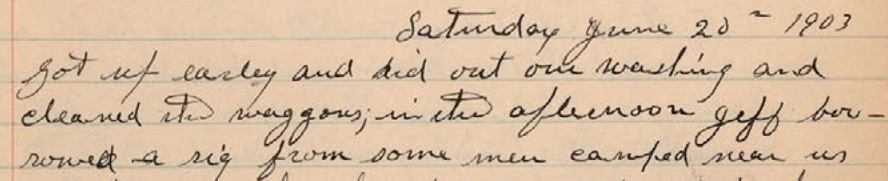 Saturday June 20" 1903
Got up earley and did out our washing and
cleaned the waggons; in the afternoon Jeff bor-
rowed a rig from some men camped near us